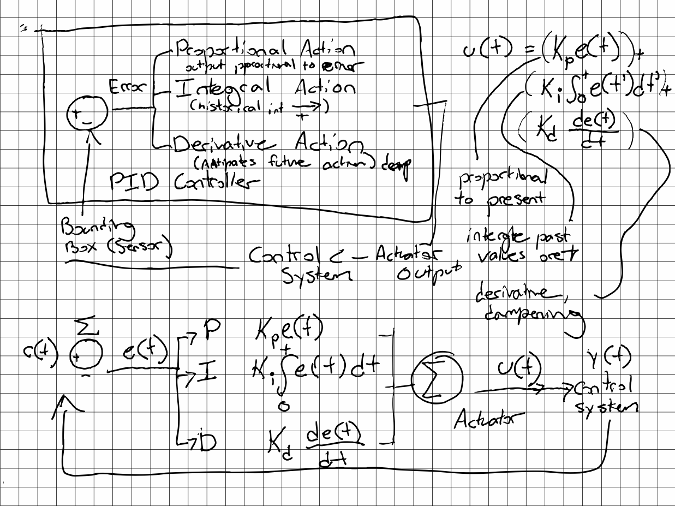 Proportional Action
output proportional to error
Error
Integral Action
(historical int → )
t
+ -
Derivative Action
(Antipates future action) damp
PID Controller
Bounding
Box (Sensor)
Control < - Actuator
System Output
u(t) = (Kp e(t)) +
(Ki ∫0^t e(t')dt') +
(Kd de(t)/dt)
proportional
to present
past
values
derivative,
dampening
Σ
r(t) + - e(t)
P Kp e(t)
I Ki ∫0^t e(t) dt
D Kd de(t)/dt
Σ u(t) y(t)
Actuator
Control
system